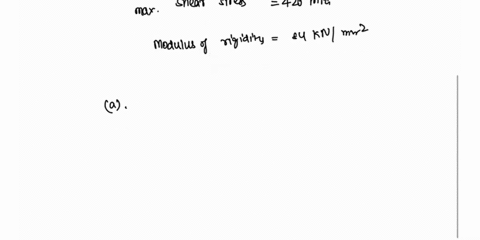 max. shear stress = 420 MPa
Modulus of rigidity = 84 KN/mm2
(a).